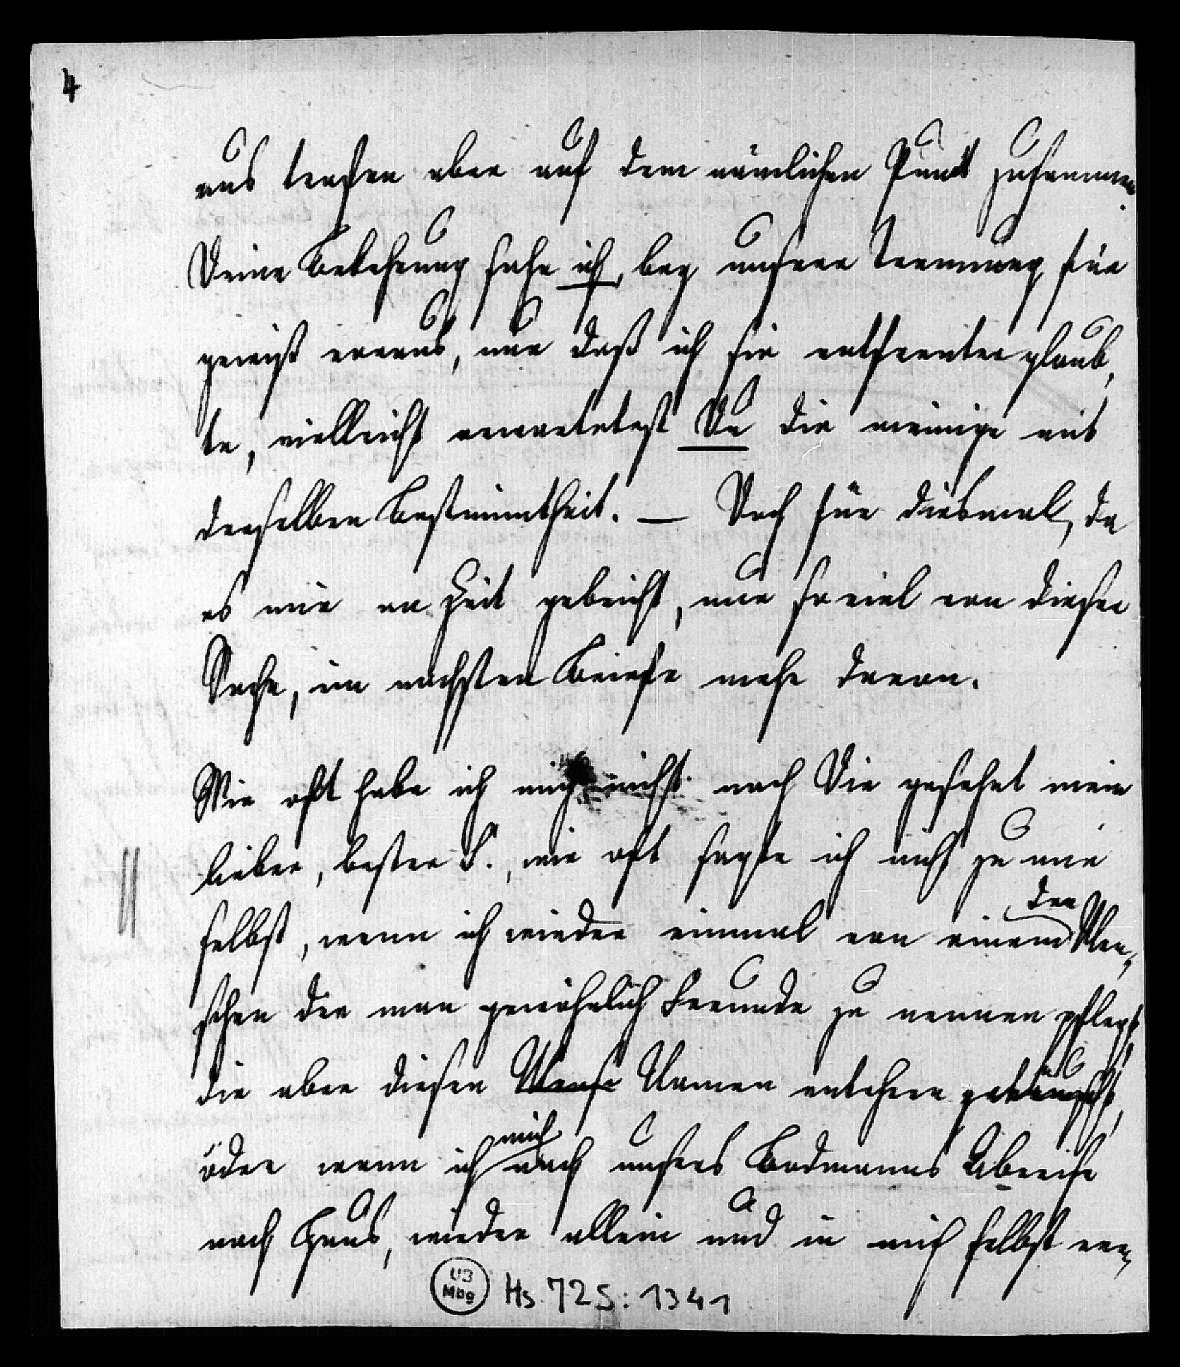 4
uns trafen aber auf dem nämlichen Punkt zusammen.
Deine Bekehrung sahe ich, bey unsrer Trennung, für
gewiß voraus, nur daß ich sie entfernter glaub,
te, vielleicht erwartetest Du die meinige mit
derselben Bestimmtheit. — Doch für diesmal, da
es mir an Zeit gebricht, nur so viel von dieser
Sache, im nächsten Briefe mehr davon.
Wie oft habe ich mich nicht nach Dir gesehnt mein
lieber, bester S., wie oft sagte ich nicht zu mir
selbst, wenn ich wieder einmal von einem der Men,
schen die man gewöhnlich Freunde zu nennen pflegt,
die aber diesen Namen entehren getäuscht,
oder wenn ich mich nach unsers Bodmanns Abreise
nach Haus, wieder allein und in mich selbst ver,
UB Mbg Hs. 725: 1341